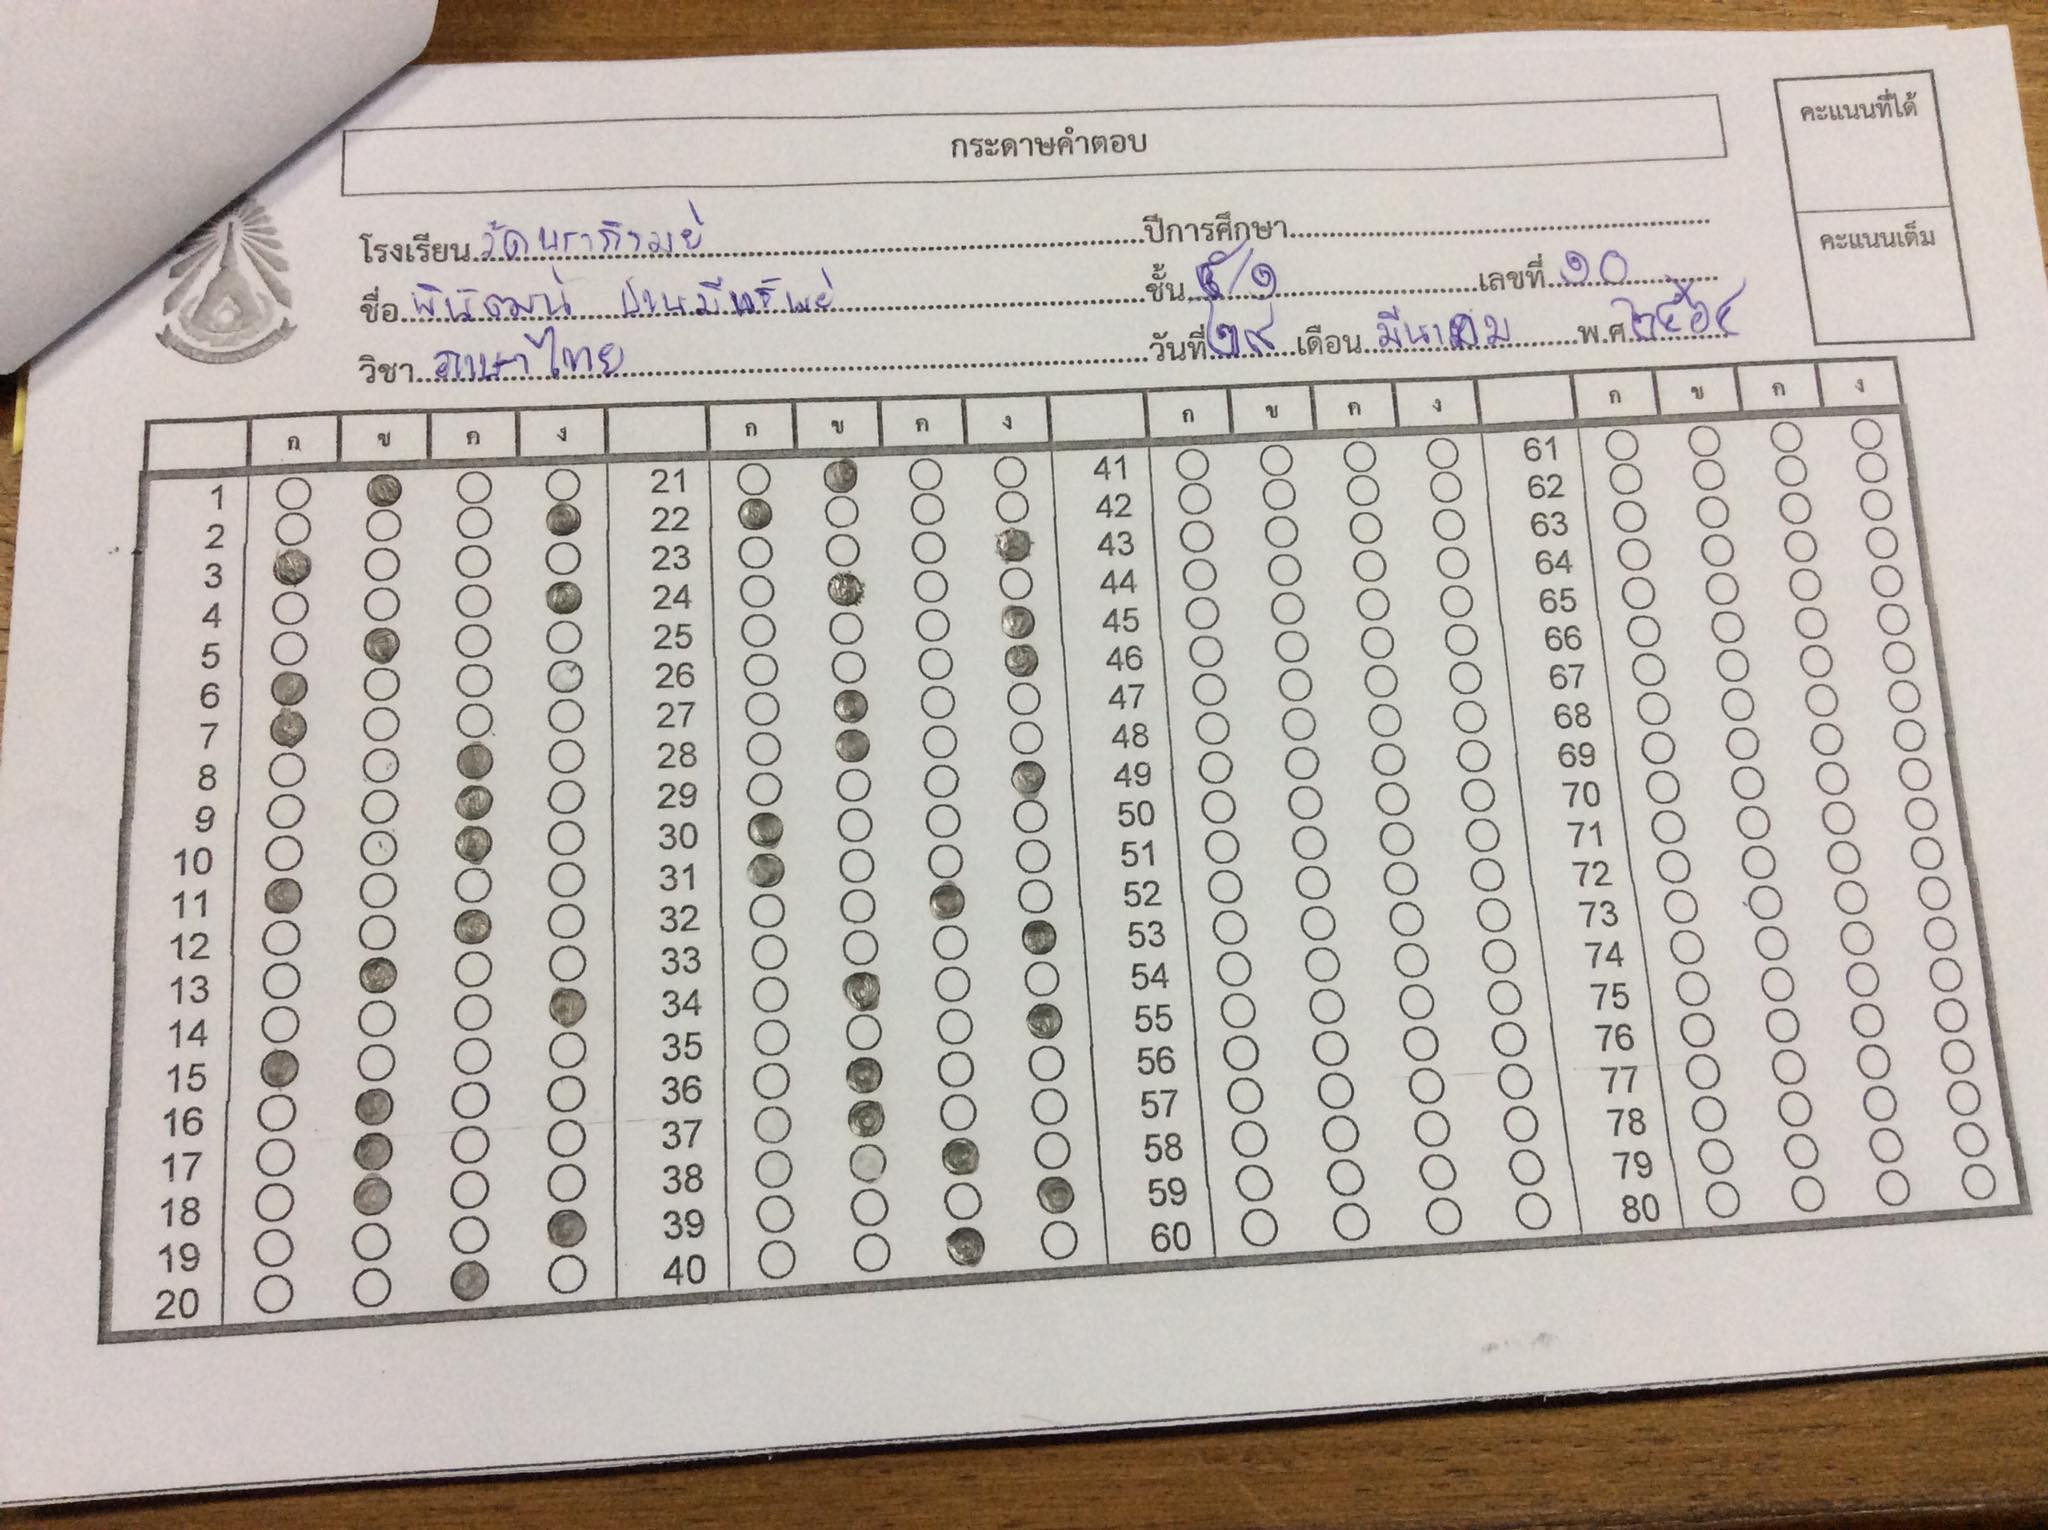 กระดาษคำตอบ
คะแนนที่ได้
คะแนนเต็ม
โรงเรียน วัดนราภิรมย์ ปีการศึกษา
ชื่อ พินิจวัฒน์ ชั้น ๕/๑ เลขที่ ๑๐
วิชา ภาษาไทย วันที่ ๒๙ เดือน มีนาคม พ.ศ. ๒๕๖๔
ก ข ค ง ก ข ค ง ก ข ค ง ก ข ค ง
1 21 41 61
2 22 42 62
3 23 43 63
4 24 44 64
5 25 45 65
6 26 46 66
7 27 47 67
8 28 48 68
9 29 49 69
10 30 50 70
11 31 51 71
12 32 52 72
13 33 53 73
14 34 54 74
15 35 55 75
16 36 56 76
17 37 57 77
18 38 58 78
19 39 59 79
20 40 60 80